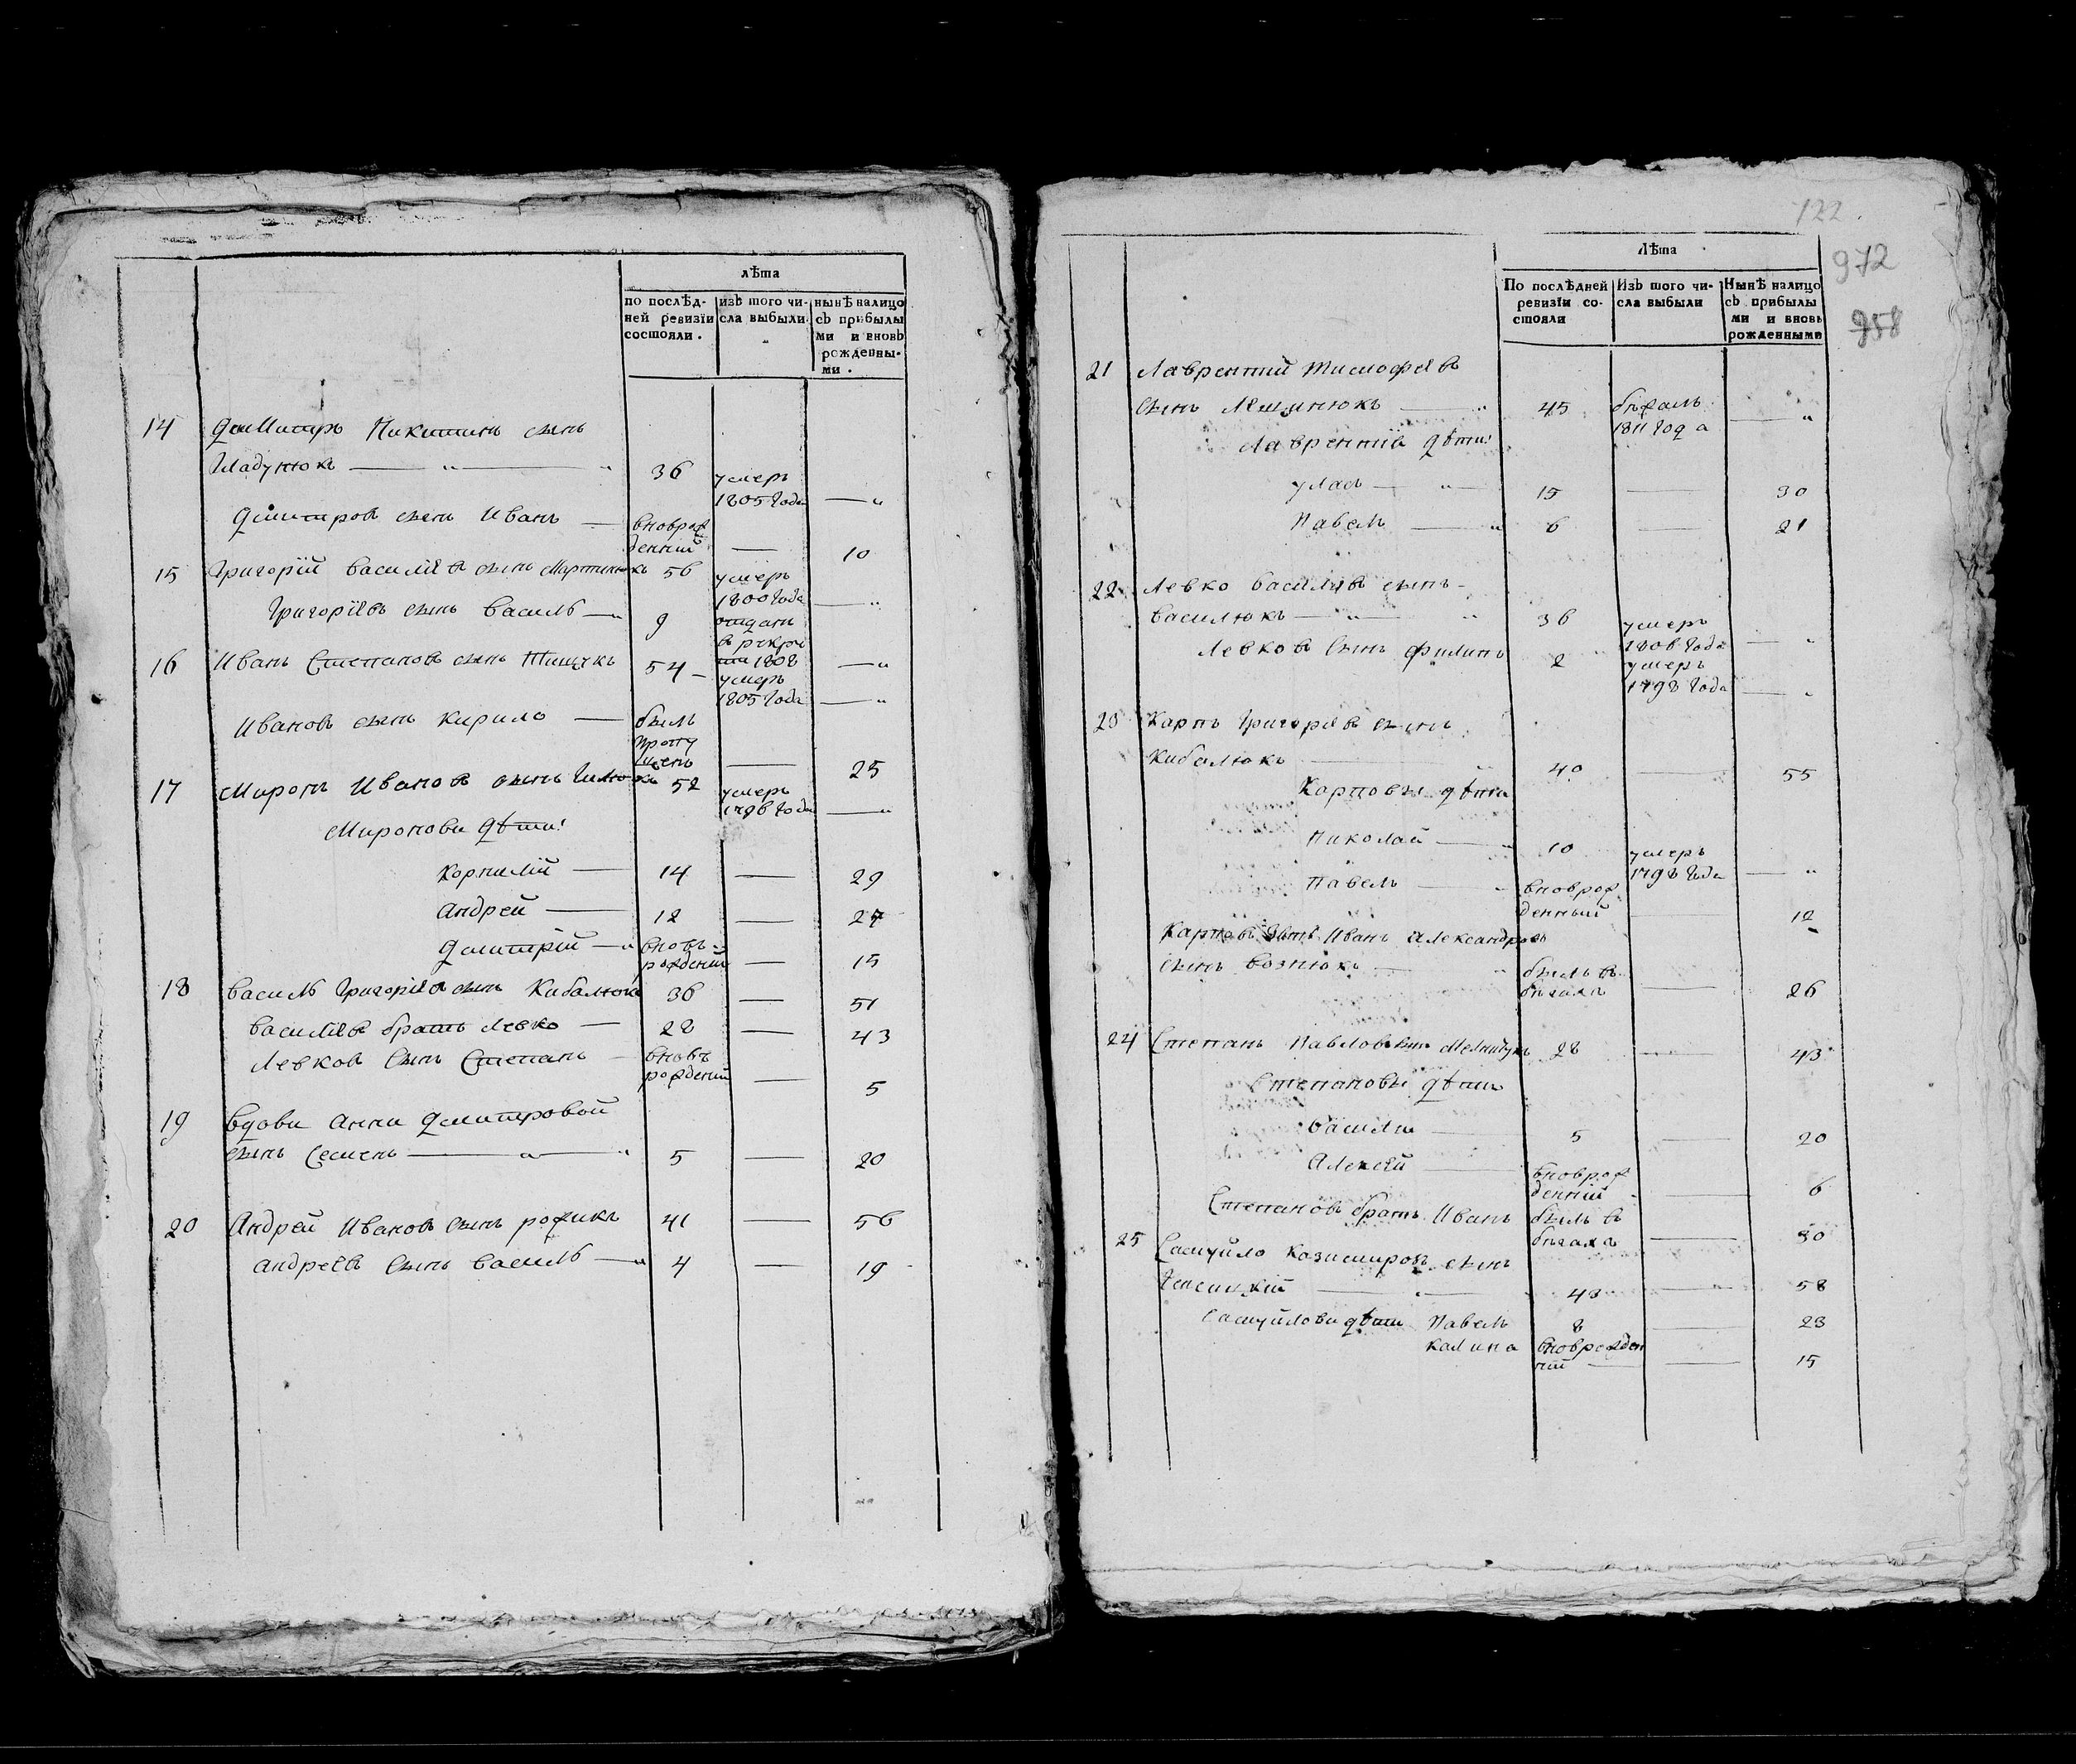 лѣта
по послѣд-
ней ревизіи
состояли.
изъ того чи-
сла выбыли
нынѣ налицо
съ прибылы
ми и вновь
рожденны-
ми.
14 Дмитръ Никитинъ сынъ
36 умеръ
1805 Года — „
Дмитровъ сынъ Иванъ — вноврож
денній — 10
15 Григорій Василіевъ сынъ Мартинюкъ 56 умеръ
1800 Года — „
Григоріевъ сынъ Василь — „ 9 отданъ
в рекру
ти 1808 — „
16 Иванъ Степановъ сынъ 54 — умеръ
1805 Года — „
Ивановъ сынъ Кирило — былъ
пропу
щенъ — 25
17 Миронъ Ивановъ сынъ 52 умеръ
1796 Года — „
Миронови дѣти:
Корнилій — 14 — 29
Андрей — 12 — 27
Дмитрій — „ вновъ-
рожденій — 15
18 Василь Григоріевъ сынъ Кибалюкъ 36 — 51
Василіевъ братъ Левко — 28 — 43
Левковъ сынъ Степанъ — вновъ
рожденій — 5
19 Вдови Анни Дмитровой
сынъ Семенъ — „ — „ 5 — 20
20 Андрей Ивановъ сынъ рожикъ 41 — 56
Андреевъ сынъ Василь — „ 4 — 19
122
972
958
Лѣта
По послѣдней
ревизіи со-
стояли
Изъ того чи-
сла выбыли
Нынѣ налицо
съ прибылы
ми и вновь
рожденными
21 Лаврентий Тимофіевъ
сынъ — „ 45 бѣжалъ
1811 Года — „
Лаврентіїв дѣти:
улас — „ 15 — 30
Павелъ — „ 6 — 21
22 Левко Василіевъ сынъ —
Василюкъ — „ — „ 36 умеръ
1806 Года — „
Левковъ сынъ Филипъ 2 умеръ
1798 Года — „
23 Карпъ Григоріевъ сынъ
Кибалюкъ — „ 40 — 55
Карповы дѣти
Николай — „ 10 умеръ
1798 Года — „
Павелъ — „ вноврож
денный — 12
Карповъ Иванъ Александровъ
сынъ Вознюкъ — „ былъ в
бѣгахъ — 26
24 Степанъ Павловъ сынъ Мелничукъ 28 — 43
Степановы дѣти
Василій — 5 — 20
Алексѣй — вноврож
денній — 6
Степановъ братъ Иванъ былъ в
бѣгахъ — 30
25 Самуйло Казимировъ сынъ
— „ 43 — 58
Самуйлови дѣти Павелъ 8 — 23
Калина вноврожден
ній — 15